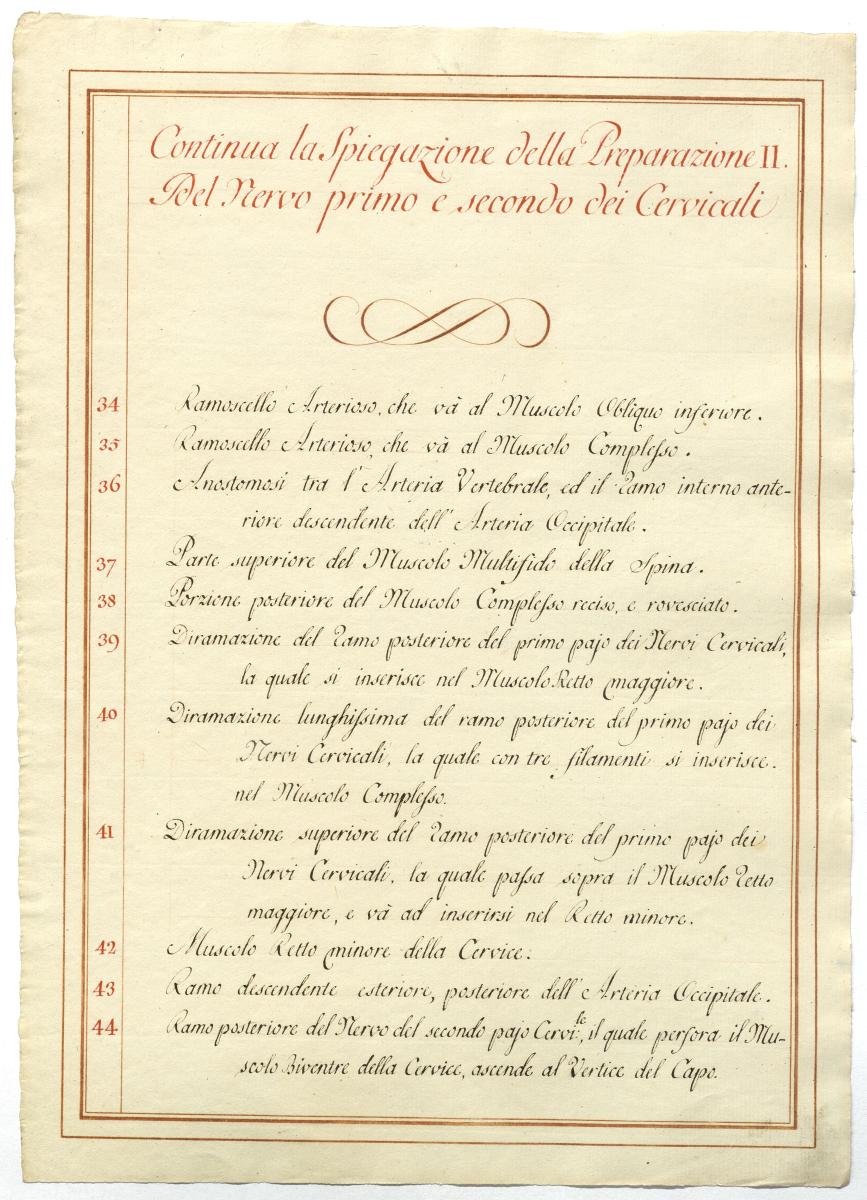 Continua la Spiegazione della Preparazione II.
Del Nervo primo e secondo dei Cervicali
34 Ramoscello Arterioso, che và al Muscolo Obliquo inferiore.
35 Ramoscello Arterioso, che và al Muscolo Complesso.
36 Anostomosi tra l'Arteria Vertebrale, ed il Ramo interno ante-
riore descendente dell'Arteria Occipitale.
37 Parte superiore del Muscolo Multifido della Spina.
38 Porzione posteriore del Muscolo Complesso reciso, e rovesciato.
39 Diramazione del Ramo posteriore del primo pajo dei Nervi Cervicali,
la quale si inserisce nel Muscolo Retto maggiore.
40 Diramazione lunghissima del ramo posteriore del primo pajo dei
Nervi Cervicali, la quale con tre filamenti si inserisce
nel Muscolo Complesso.
41 Diramazione superiore del Ramo posteriore del primo pajo dei
Nervi Cervicali, la quale passa sopra il Muscolo Retto
maggiore, e và ad inserirsi nel Retto minore.
42 Muscolo Retto minore della Cervice.
43 Ramo descendente esteriore, posteriore dell'Arteria Occipitale.
44 Ramo posteriore del Nervo del secondo pajo Cervi:le, il quale perfora il Mu-
scolo Biventre della Cervice, ascende al Vertice del Capo.